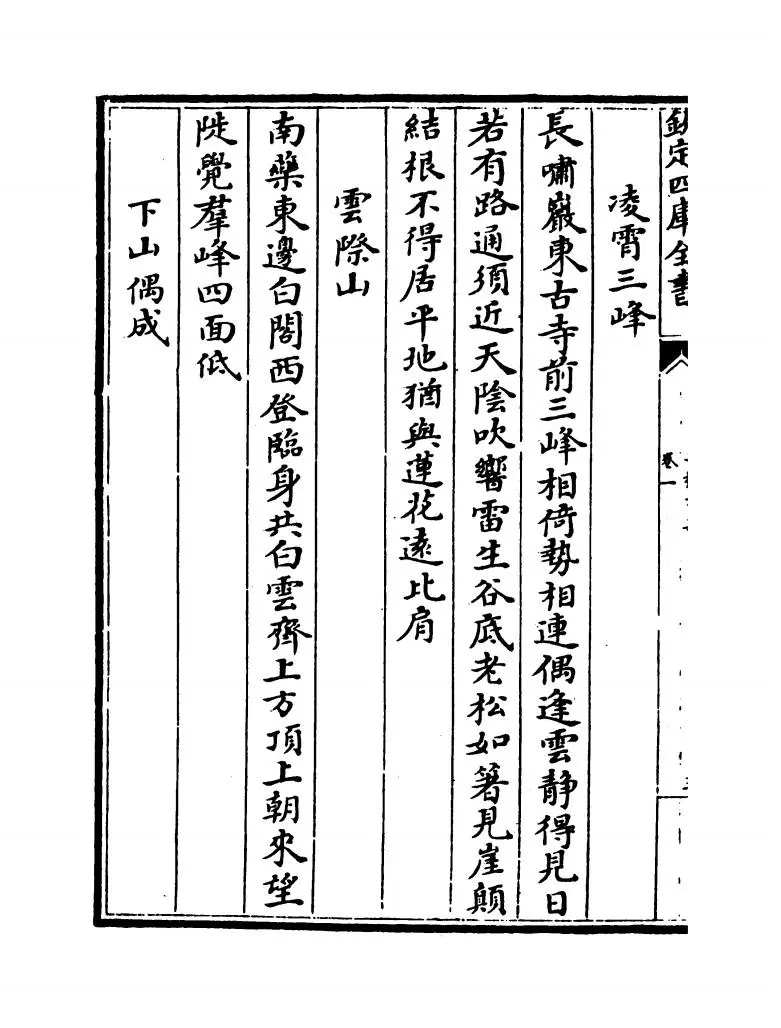 欽定四庫全書
卷一
凌霄三峰
長嘯巖東古寺前三峰相倚勢相連偶逢雲静得見日
若有路通須近天陰吹響雷生谷底老松如箸見崖顛
結根不得居平地猶與蓮花遠比肩
雲際山
南藥東邊白閣西登臨身共白雲齊上方頂上朝來望
陡覺羣峰四面低
下山偶成